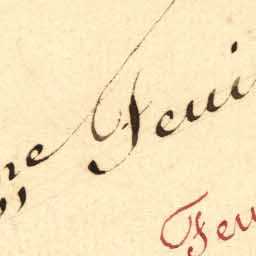 ne Feui
Feu